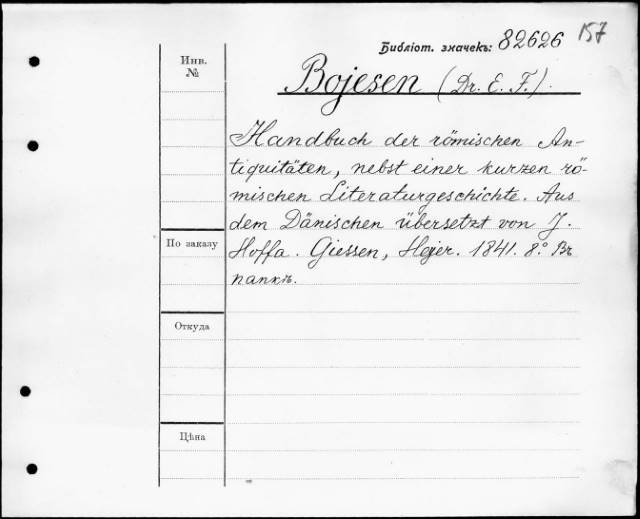 157
Библіот. значекъ: 82626
Инв.
№
Bojesen (Dr. E. F.).
Handbuch der römischen An-
tiquitäten, nebst einer kurzen rö-
mischen Literaturgeschichte. Aus
dem Dänischen übersetzt von J.
По заказу
Hoffa. Giessen, Hejer. 1841. 8.° Въ
папкѣ.
Откуда
Цѣна